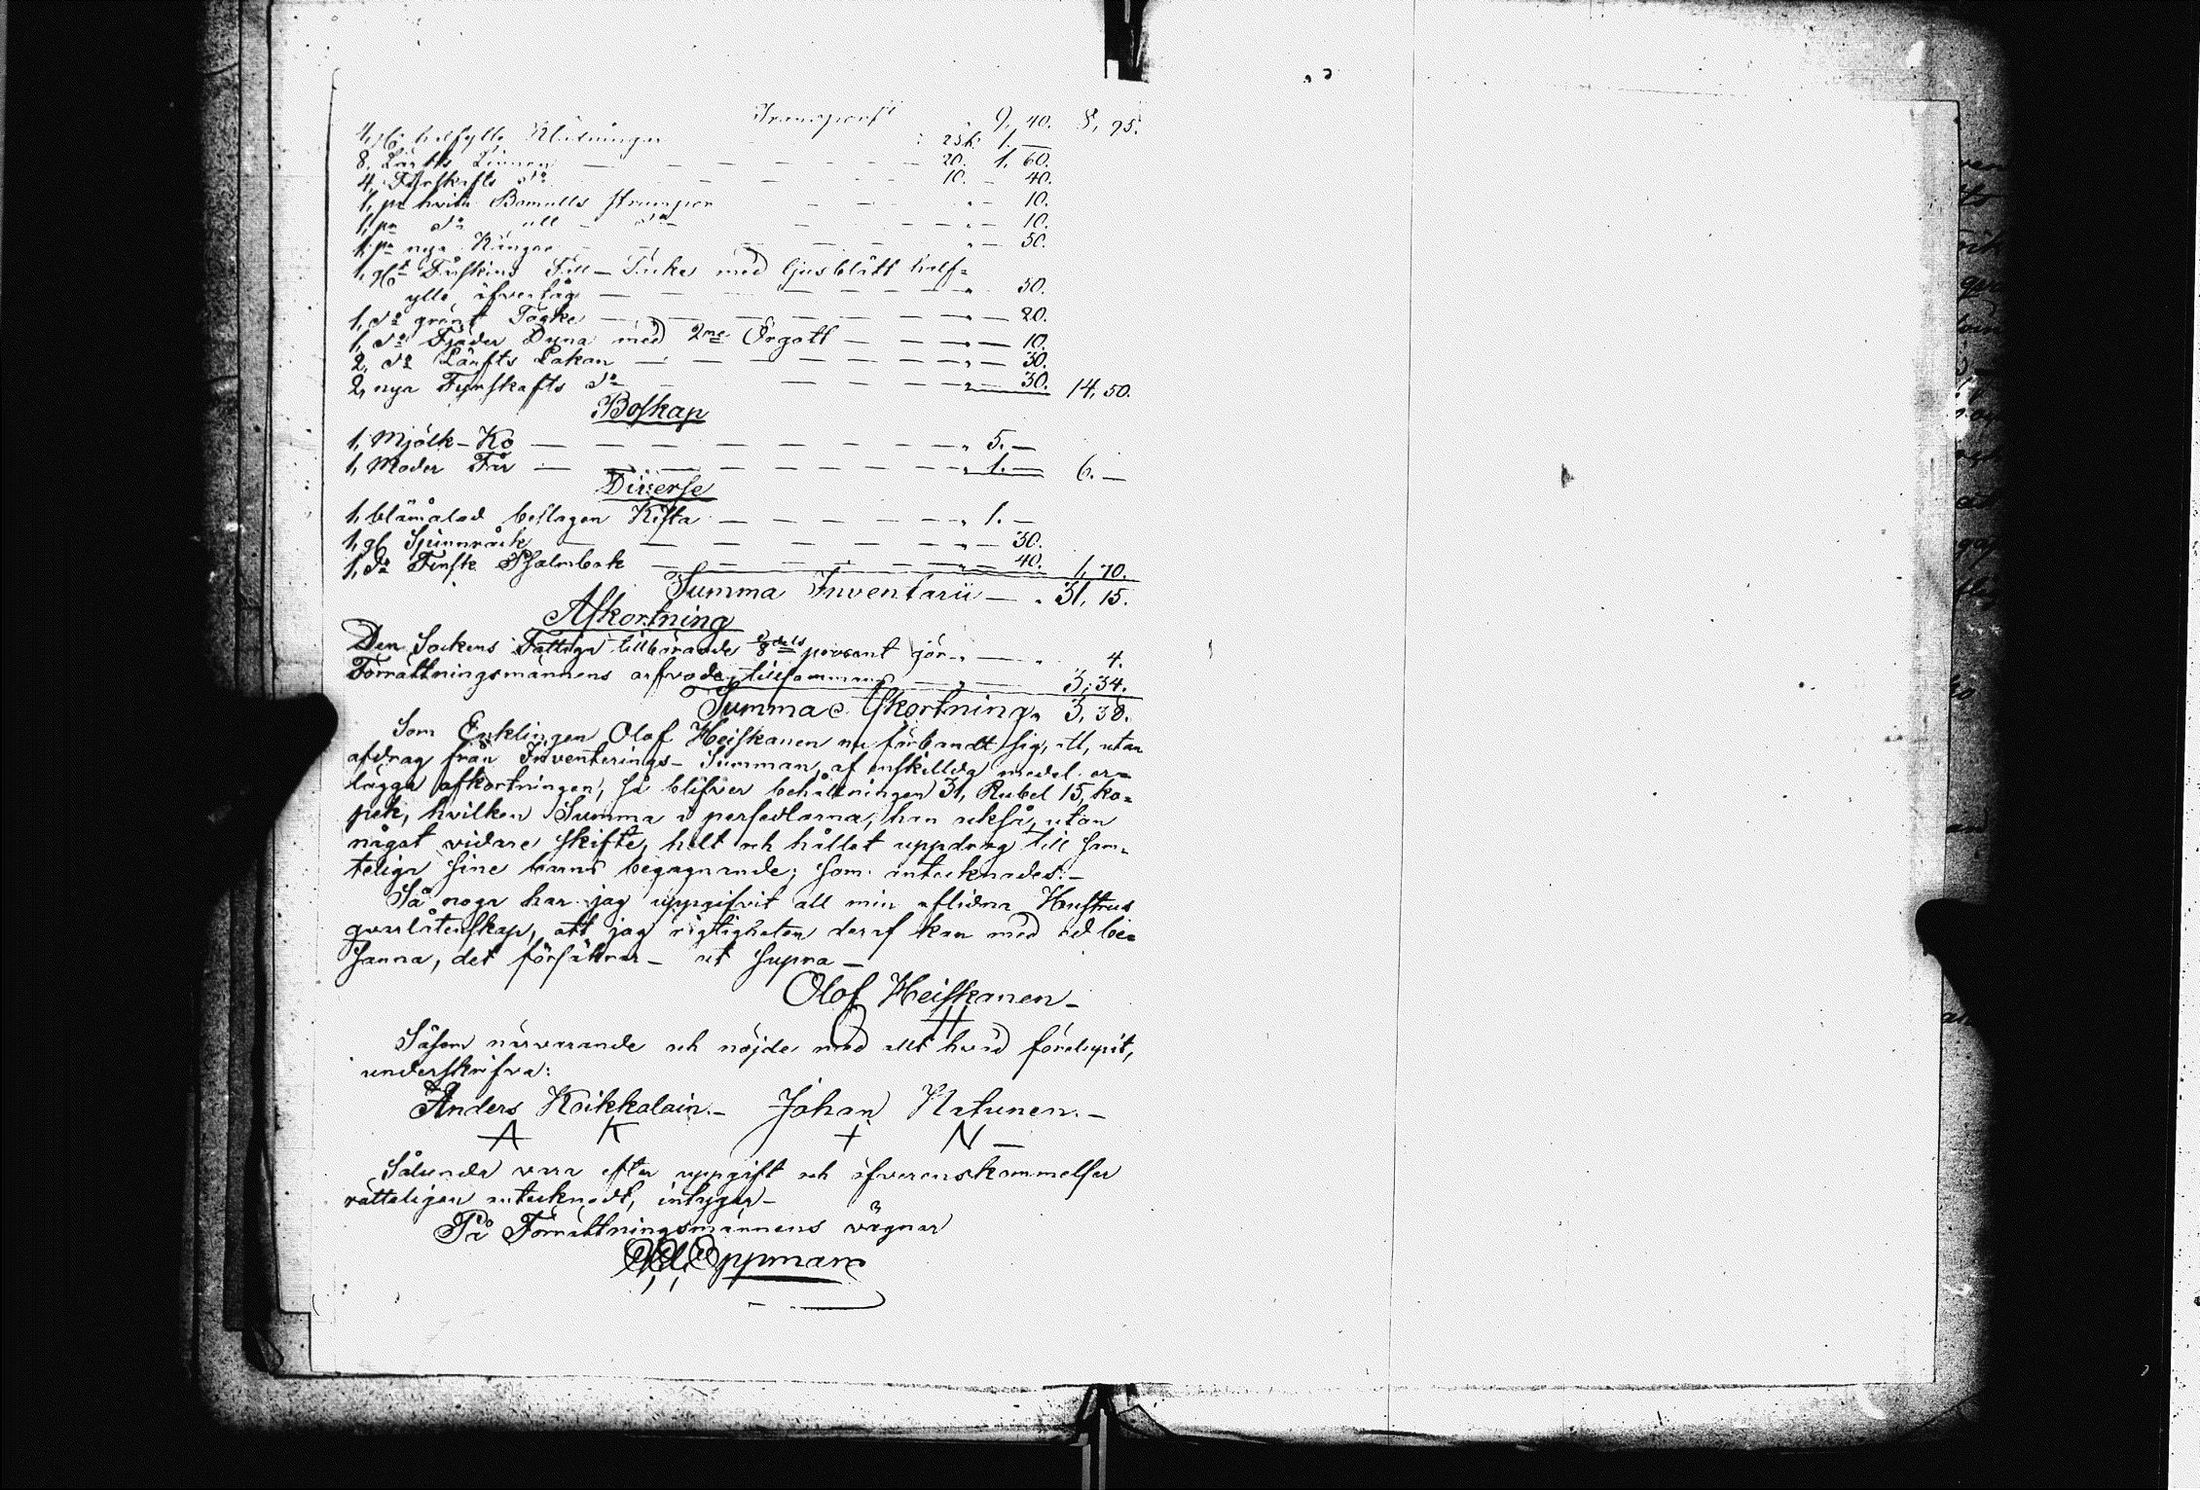 Transport 9, 40. 8, 95.
4, gl. halfylle Klädningar 25 k. 1. —
8, Lärfts Linnen — — — — — 20. 1, 60.
4, Fyrskafts do — — — 10. — 40.
1, pr hvita Bomulls strumpor — — — 10.
1, pr do ull do — — — 10.
1, pr nya Kängor — — — — 50.
1, glt Fårskins Fäll-Täcke med ljusblått half-
ylle öfvertåg — — — — — 50.
1, do grönt Täcke — — — — — 20.
1, do Fjäder Dyna med 2ne Örgott — — — 10.
2, do Lärfts Lakan — — — — — 30.
2, nya Fyrskafts do — — — — 30. 14, 50.
Boskap
1, Mjölk-Ko — — — — — — 5. —
1, Moder Får — — — — — 1. — 6. —
Diverse
1, blåmålad beslagen Kista — — — — — 1. —
1, gl Spinnråck — — — — — 30.
1, do Finsk Psalmbok — — — — 40. 1, 70.
Summa Inventarii — 31, 15.
Afkortning
Den Sockens Fattiga tillhörande 1/8 dels procent gör — 4.
Förrättningsmännens arfvode, tillsammans — — 3, 34.
Summa Afkortning 3, 38.
Som Enklingen Olof Heiskanen nu förbandt sig, att, utan
afdrag från Inventerings-Summan, af enskillda medel er-
lägga afkortningen, så blifver behållningen 31, Rubel 15, ko-
pek, hvilken Summa i persedlarna, han också, utan
något vidare skifte, helt och hållet uppdrog till sam-
teliga sine barns begagnande; som antecknades. —
Så noga har jag uppgifvit all min aflidna Hustrus
qvarlåtenskap, att jag rigtigheten deraf kan med ed be-
sanna, det försäkras — ut supra —
Olof Heiskanen —
O H
Såsom närvarande och nöjde med allt hvad förelupit,
underskrifva:
Anders Koikkalain. — Johan Natunen. —
A K I N —
Sålunda vara efter uppgift och öfverenskommelser
rätteligen antecknadt, intygar —
På Förrättningsmännens vägnar
Eppman